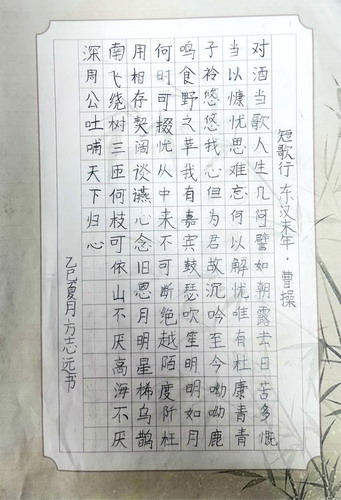 短歌行 东汉末年·曹操
对酒当歌人生几何譬如朝露去日苦多慨
当以慷忧思难忘何以解忧唯有杜康青青
子衿悠悠我心但为君故沉吟至今呦呦鹿
鸣食野之苹我有嘉宾鼓瑟吹笙明明如月
何时可掇忧从中来不可断绝越陌度阡枉
用相存契阔谈讌心念旧恩月明星稀乌鹊
南飞绕树三匝何枝可依山不厌高海不厌
深周公吐哺天下归心
乙巳夏月方志远书